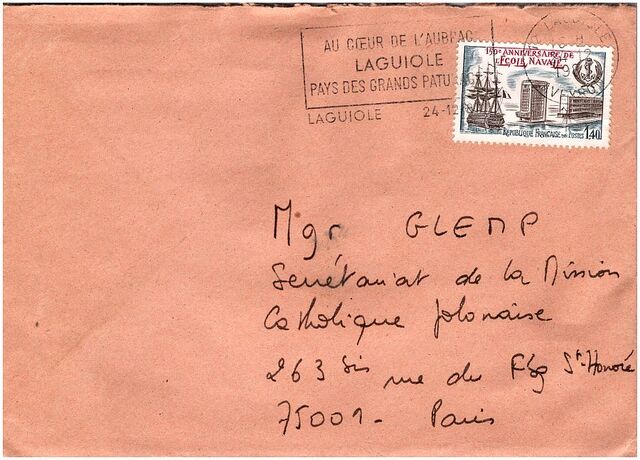 AU CŒUR DE L'AUBRAC
LAGUIOLE
PAYS DES GRANDS
LAGUIOLE 24-12
LAGUIOLE
150e ANNIVERSAIRE DE
L'ECOLE NAVALE
REPUBLIQUE FRANÇAISE POSTES 1,40
Mgr GLEMP
Secrétariat de la Mission
Catholique polonaise
263 bis rue du Fbg St-Honoré
75001 - Paris